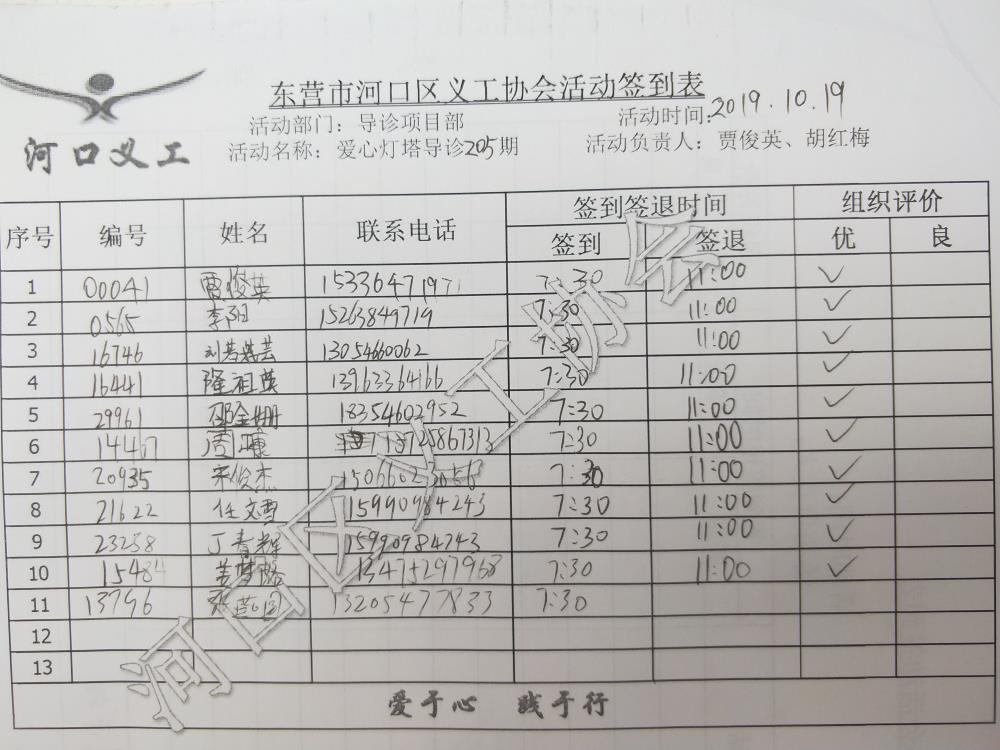 东营市河口区义工协会活动签到表
河口义工
活动部门：导诊项目部 活动时间：2019.10.19
活动名称：爱心灯塔导诊205期 活动负责人：贾俊英、胡红梅
序号 编号 姓名 联系电话 签到签退时间 组织评价
签到 签退 优 良
1 00041 贾俊英 15336471971 7:30 11:00 ✓
2 0565 李阳 15263849719 7:30 11:00 ✓
3 16746 刘若芸 13054660062 7:30 11:00 ✓
4 16441 隆祖英 13963364166 7:30 11:00 ✓
5 29961 邵金姗 18354602952 7:30 11:00 ✓
6 14467 周 18725867313 7:30 11:00 ✓
7 20935 宋俊杰 7:30 11:00 ✓
8 21622 任文雪 15990984243 7:30 11:00 ✓
9 23238 丁青辉 15990984743 7:30 11:00 ✓
10 15484 13475297968 7:30 11:00 ✓
11 13796 张 13205477833 7:30
12
13
爱于心 践于行
河口区义工协会